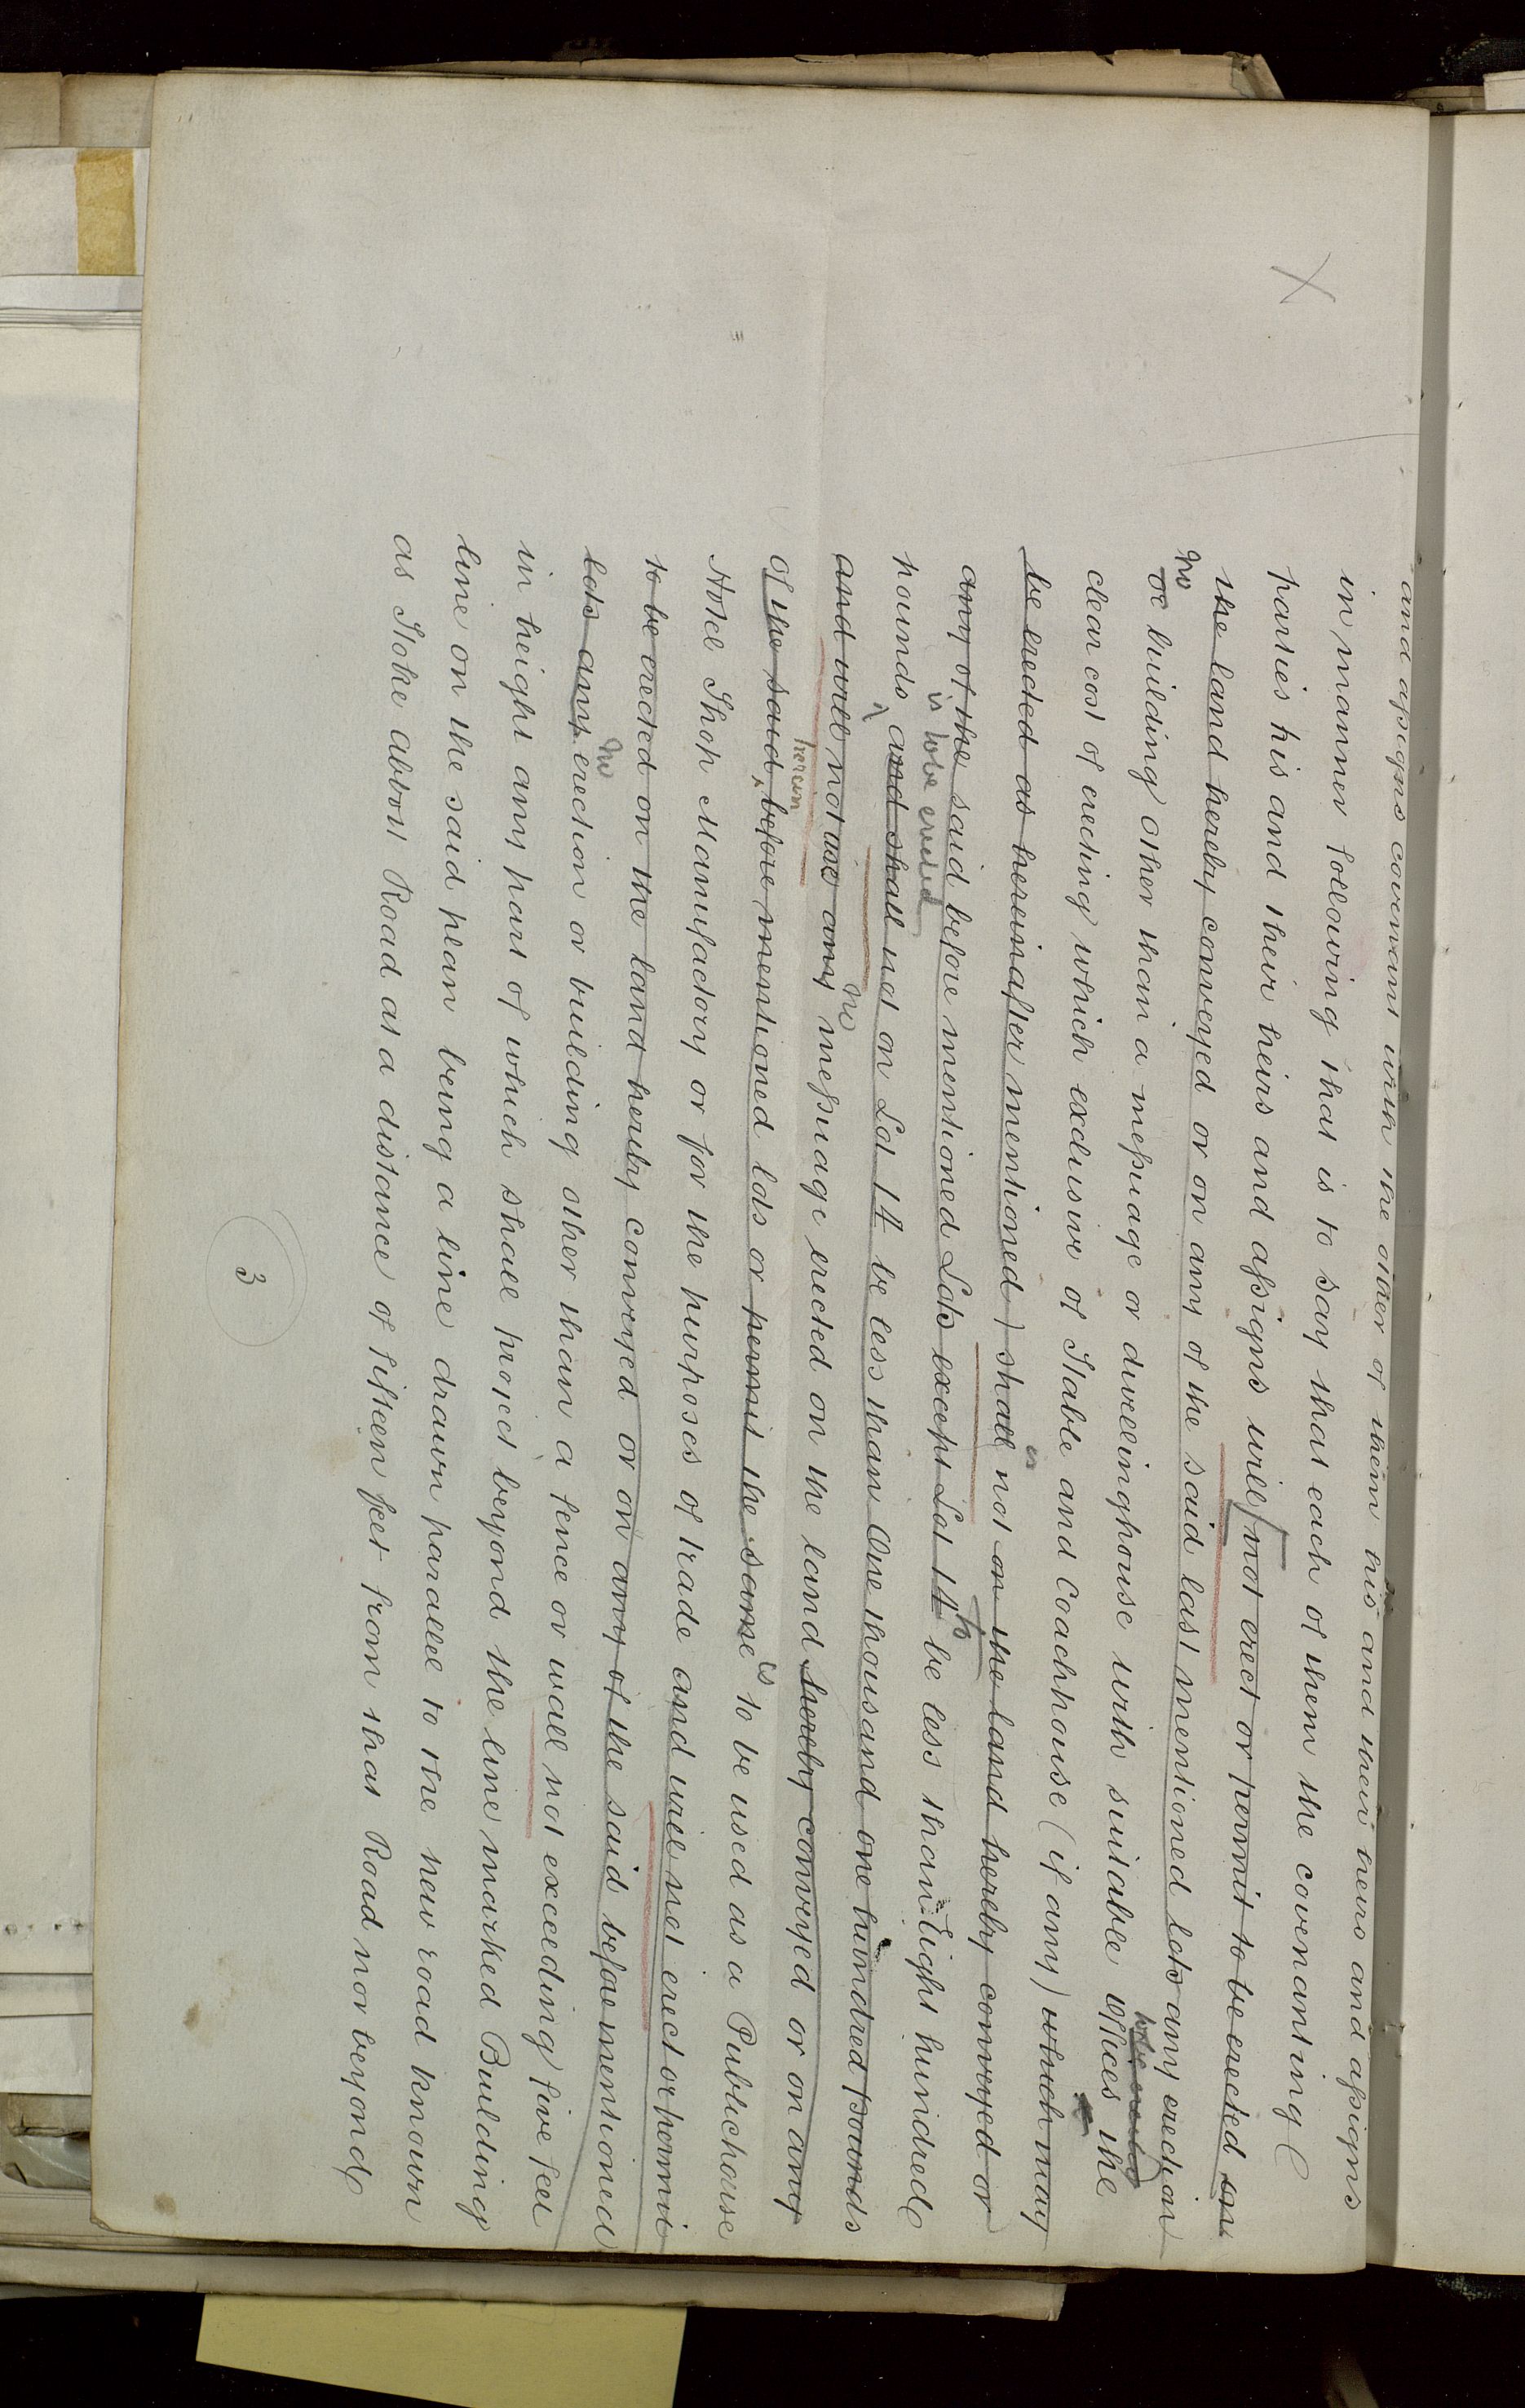 and assigns covenant with the other of them his and their heirs and assigns
in manner following that is to say that each of them the covenanting
parties his and their heirs and assigns will not erect or permit to be erected on
the land hereby conveyed or on any of the said last mentioned lots any erection
no
or building other than a messuage or dwellinghouse with suitable Offices the
to be erected
clear cost of erecting which exclusive of Stable and Coachhouse (if any) which may
be erected as hereinafter mentioned) shall not on the land hereby conveyed or
is
any of the said before mentioned Lots except Lot 14 be less than Eight hundred
to
is to be erected
pounds and shall not on Lot 14 be less than One thousand one hundred pounds
and will not use any messuage erected on the land hereby conveyed or on any
no
herein
of the said before mentioned lots or permit the same to be used as a Publichouse
is
Hotel Shop Manufactory or for the purposes of trade and will not erect or permit
to be erected on the land hereby conveyed or on any of the said before mentioned
no
lots any erection or building other than a fence or wall not exceeding five feet
in height any part of which shall project beyond the line marked Building
line on the said plan being a line drawn parallel to the new road known
as Stoke abbott Road at a distance of fifteen feet from that Road nor beyond
3